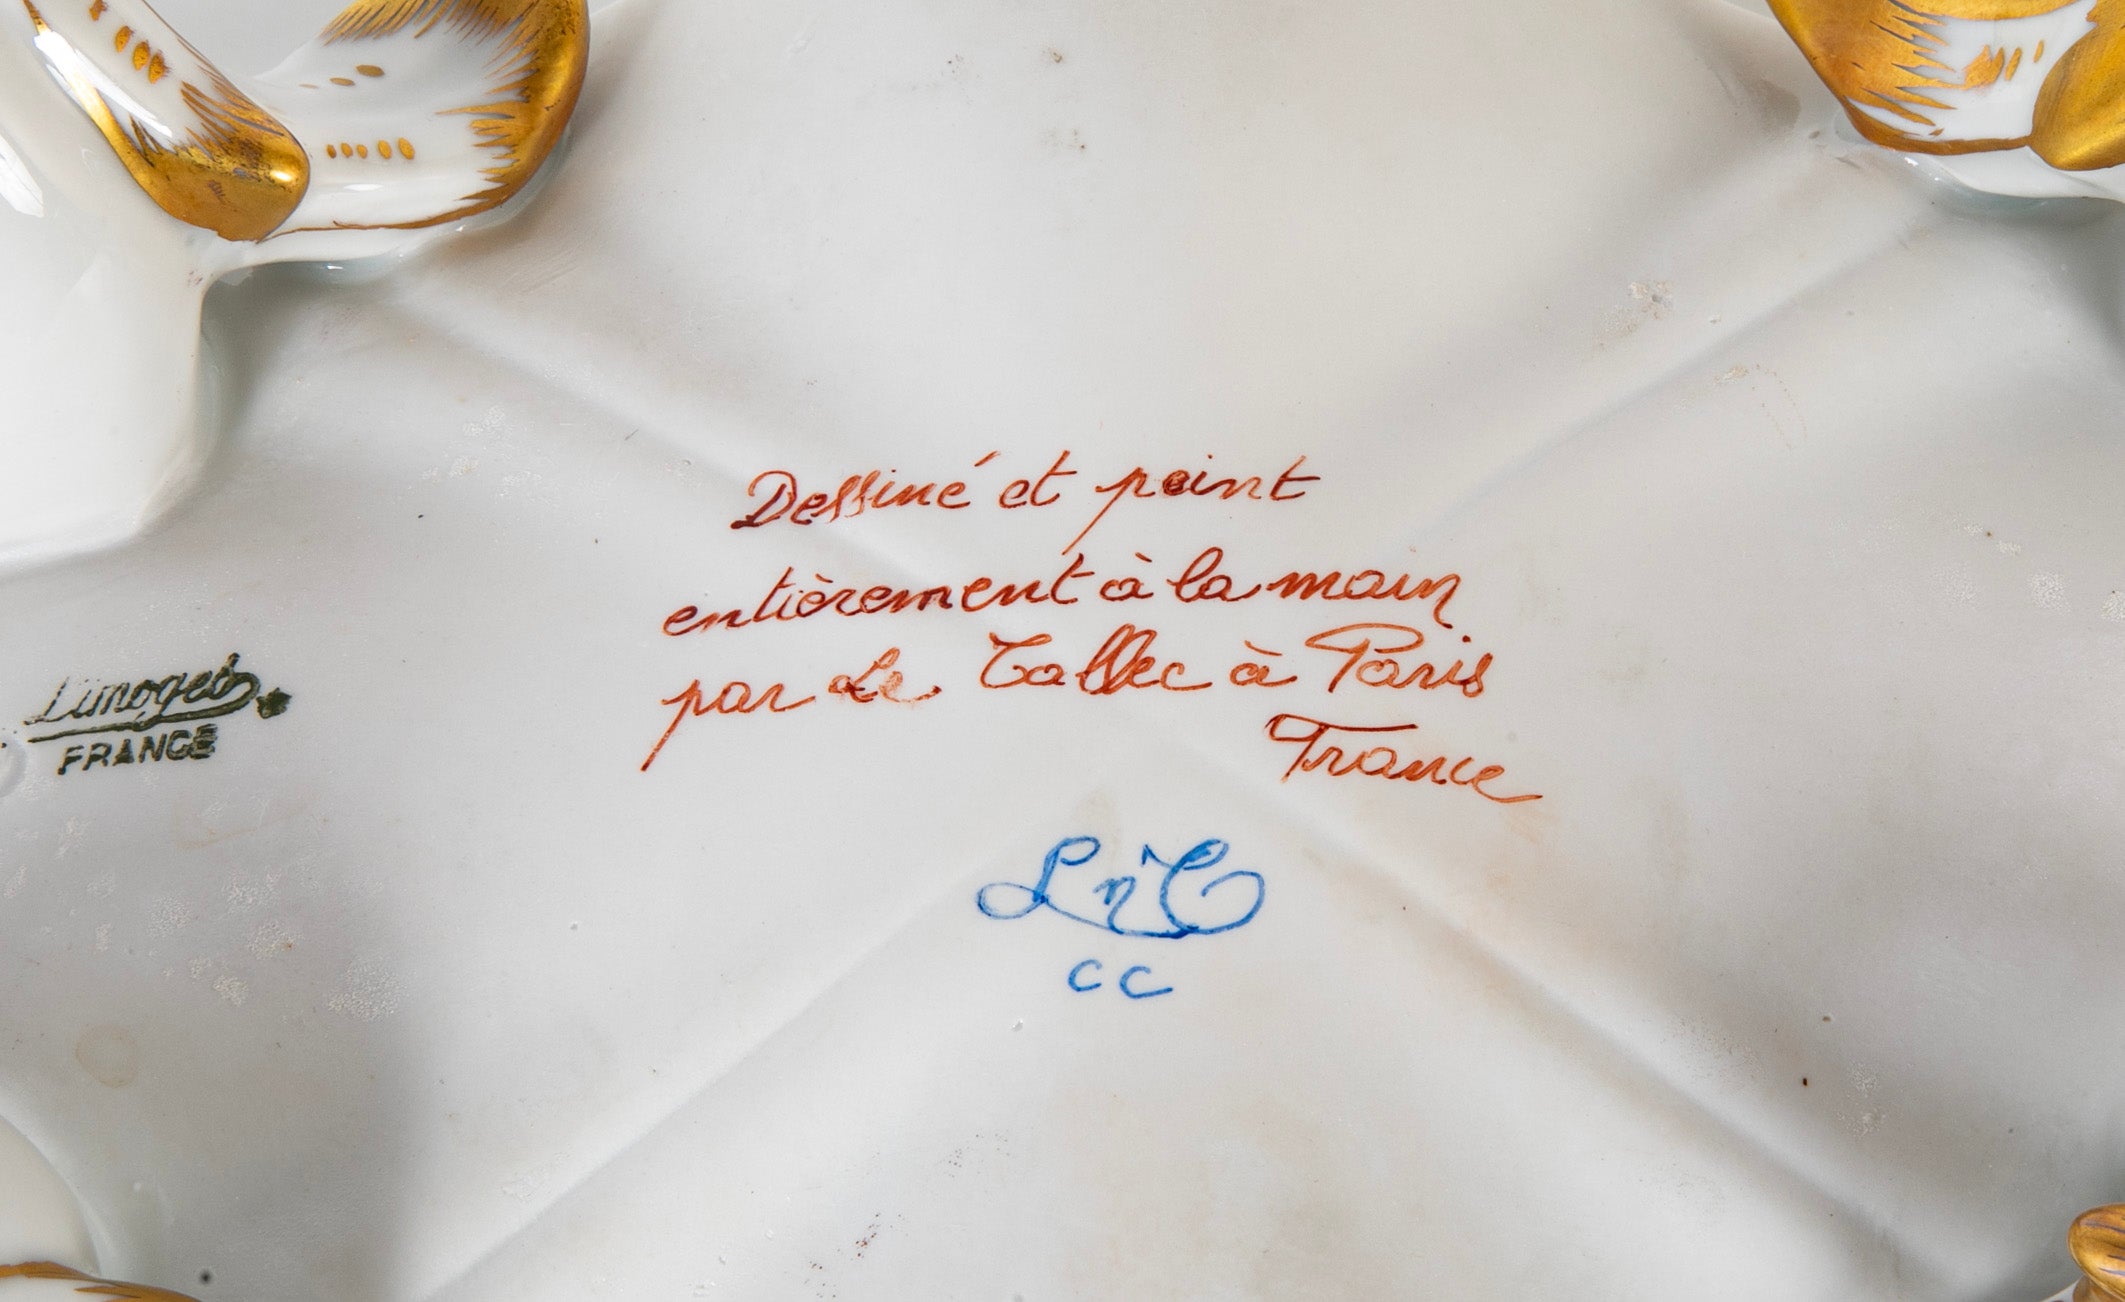 Dessiné et peint
entièrement à la main
par Le Tallec à Paris
France
Limoges
FRANCE
LnT
CC